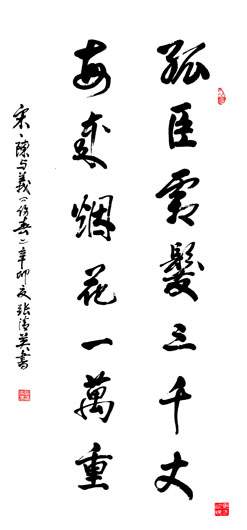 孤臣霜髮三千丈
每歲烟花一萬重
宋·陳与義《傷春》辛卯夏張清英書